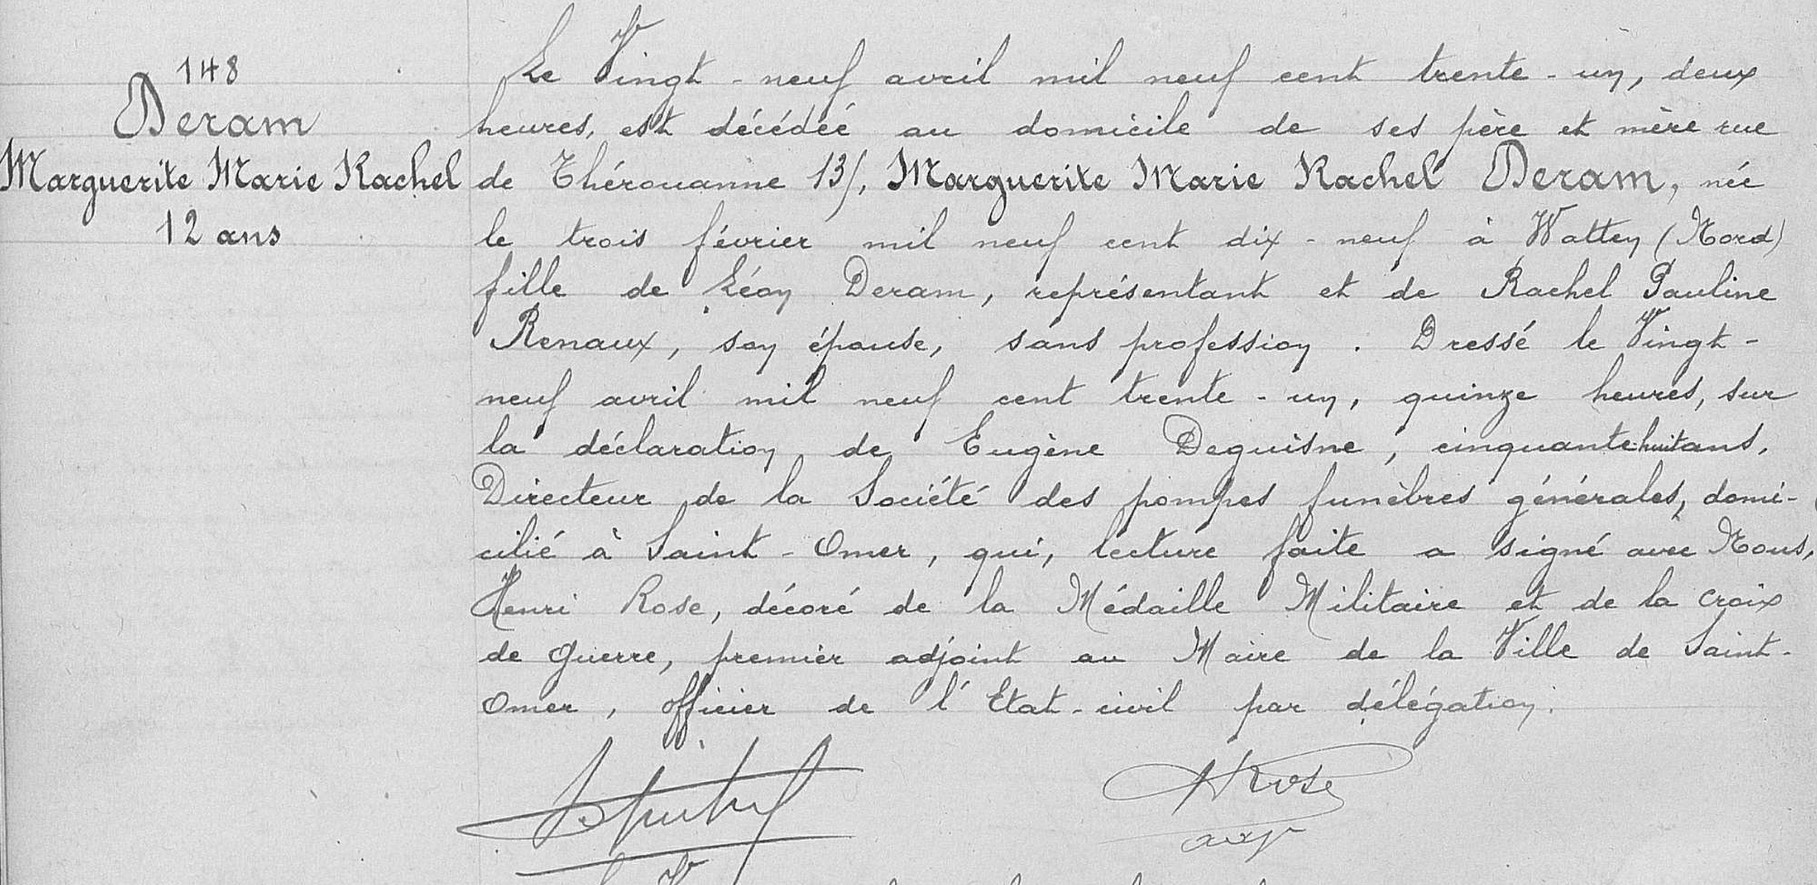 148
Deram
Marguerite Marie Rachel
12 ans
Le Vingt-neuf avril mil neuf cent trente-un, deux
heures, est décédée au domicile de ses père et mère rue
de Thérouanne 13, Marguerite Marie Rachel Deram, née
le trois février mil neuf cent dix-neuf à Watten (Nord)
fille de Léon Deram, représentant et de Rachel Pauline
Renaux, son épouse, sans profession. Dressé le Vingt-
neuf avril mil neuf cent trente-un, quinze heures, sur
la déclaration de Eugène Deguisne, cinquante huit ans,
Directeur de la Société des pompes funèbres générales, domi-
cilié à Saint-Omer, qui, lecture faite a signé avec Nous,
Henri Rose, décoré de la Médaille Militaire et de la Croix
de Guerre, premier adjoint au Maire de la Ville de Saint-
Omer, officier de l'Etat-civil par délégation.
HRose